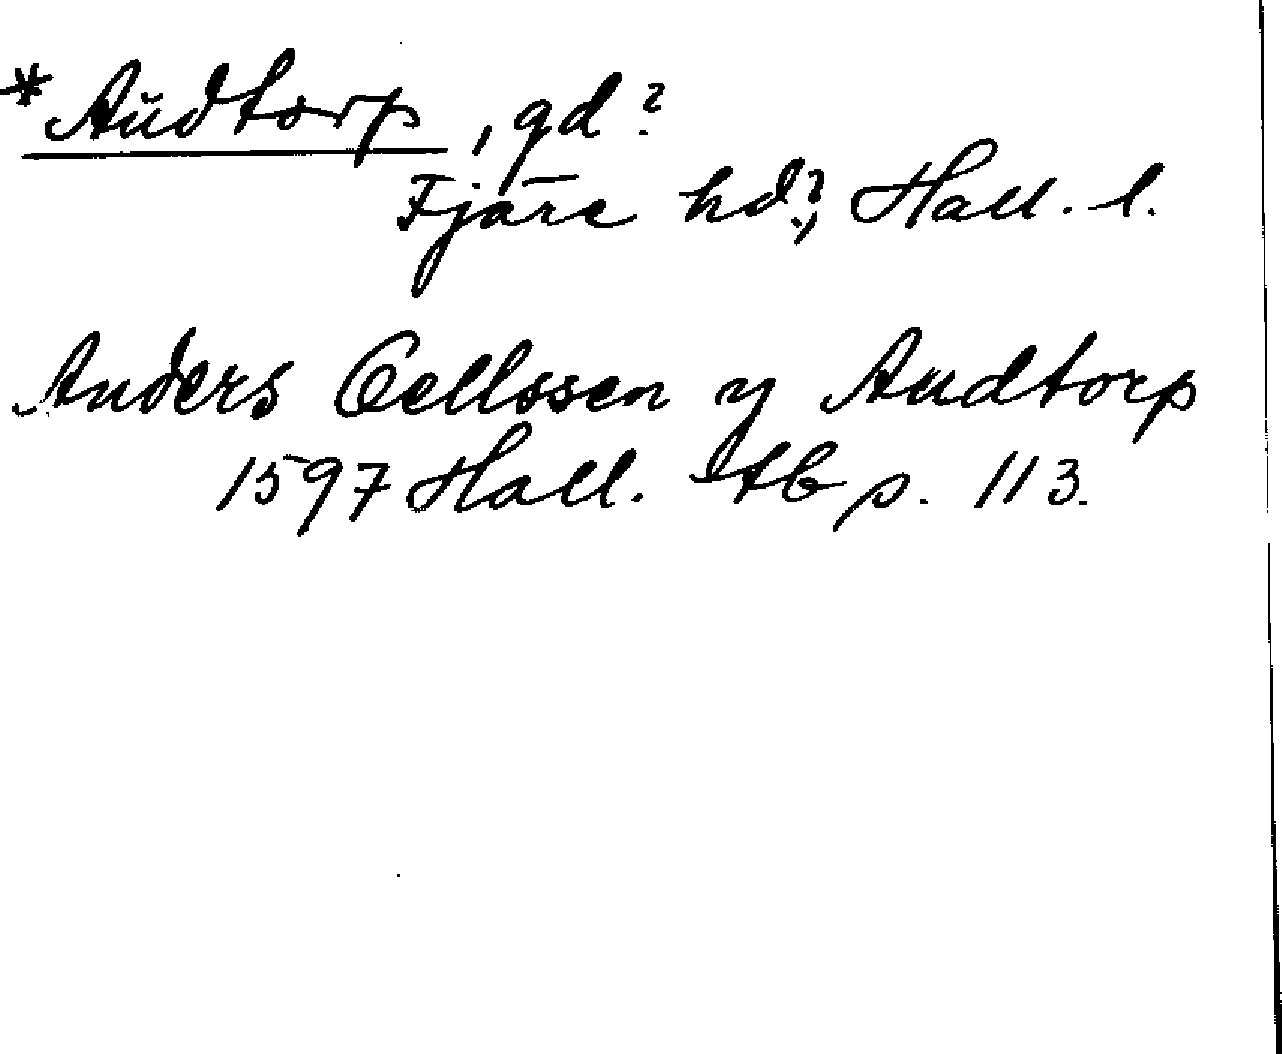 *Audtorp, gd?
Fjäre hd?, Hall. l.
Anders Oellssen y Audtorp
1597 Hall. Tb p. 113.